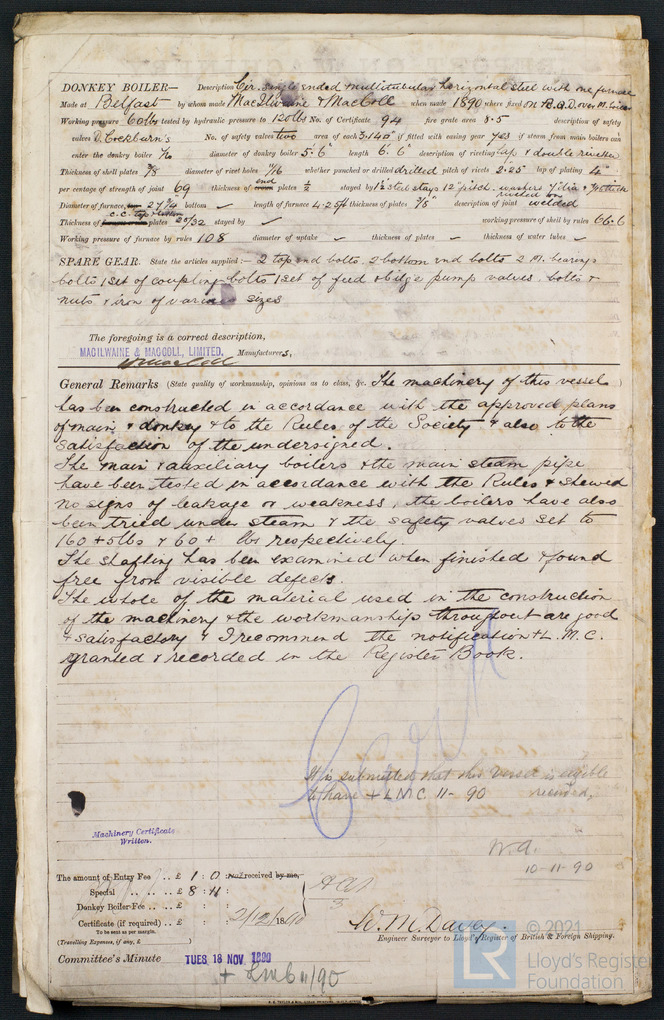 DONKEY BOILER— Description Cir. Single ended multitubular horizontal steel with one furnace
Made at Belfast by whom made MacIlwaine & MacColl when made 1890 where fixed On R.Q.D. over M.
Working pressure 60lbs tested by hydraulic pressure to 120lbs No. of Certificate 94 fire grate area 8.5 description of safety
valves D. Cockburn's No. of safety valves two area of each 3.140" if fitted with easing gear yes if steam from main boilers can
enter the donkey boiler No diameter of donkey boiler 5'.6" length 6'.6" description of riveting lap & double riveted
Thickness of shell plates 3/8 diameter of rivet holes 11/16 whether punched or drilled drilled pitch of rivets 2.25" lap of plating 4"
per centage of strength of joint 69 thickness of end plates 1/2 stayed by 1 1/2" steel stays 12" pitch. washers 7 dia & thick riveted on
Diameter of furnace, 27 3/4 bottom length of furnace 4.25ft thickness of plates 3/8" description of joint welded
Thickness of c.c. top & bottom plates 25/32 stayed by ✓ working pressure of shell by rules 66.6
Working pressure of furnace by rules 108 diameter of uptake thickness of plates thickness of water tubes
SPARE GEAR. State the articles supplied:— 2 top end bolts. 2 bottom end bolts 2 M. bearings
bolts 1 set of coupling bolts 1 set of feed & bilge pump valves. bolts &
nuts & iron of various sizes
The foregoing is a correct description,
MACILWAINE & MACCOLL, LIMITED. Manufacturers,
General Remarks (State quality of workmanship, opinions as to class, &c. The machinery of this vessel
has been constructed in accordance with the approved plans
of main & donkey & to the Rules of the Society & also to the
satisfaction of the undersigned.
The main & auxiliary boilers & the main steam pipe
have been tested in accordance with the Rules & shewed
no signs of leakage or weakness, the boilers have also
been tried under steam & the safety valves set to
160+5lbs & 60+ lbs respectively.
The shafting has been examined when finished & found
free from visible defects.
The whole of the material used in the construction
of the machinery & the workmanship throughout are good
& satisfactory & I recommend the notification +L.M.C.
granted & recorded in the Register Book.
It is submitted that this vessel is eligible
to have + LMC 11-90 recorded,
Machinery Certificate
Written.
W.A.
10-11-90
The amount of Entry Fee .. £ 1 : 0 : received by me,
Special .. .. £ 8 : 11 :
Donkey Boiler Fee .. .. £ : :
Certificate (if required) .. £ : : 2/12/1890
To be sent as per margin.
(Travelling Expenses, if any, £ )
Engineer Surveyor to Lloyd's Register of British & Foreign Shipping.
Committee's Minute TUES 18 NOV 1890
+ LMC 11/90
© 2021
Lloyd's Register
Foundation
LR